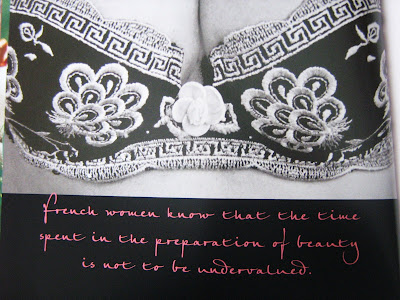 French women know that the time
spent in the preparation of beauty
is not to be undervalued.